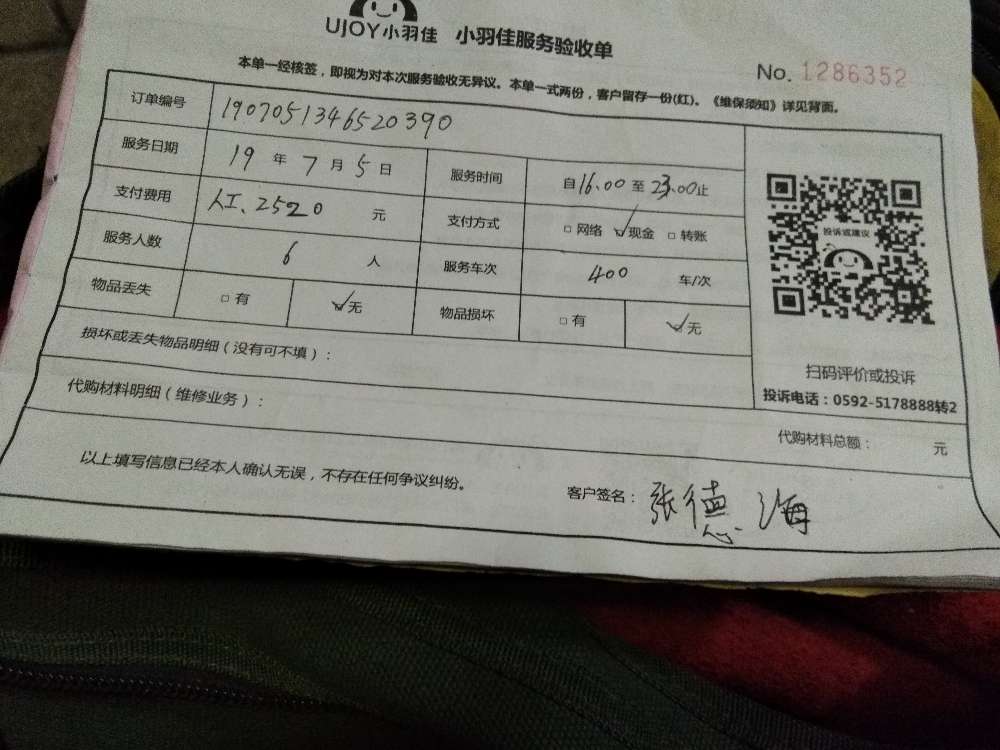 UJOY小羽佳 小羽佳服务验收单
No. 1286352
本单一经核签，即视为对本次服务验收无异议。本单一式两份，客户留存一份(红)。《维保须知》详见背面。
订单编号 1907051346520390
服务日期 19 年 7 月 5 日 服务时间 自16.00 至 23.00止
支付费用 人工、2520 元 支付方式 □ 网络 ☑ 现金 □ 转账
服务人数 6 人 服务车次 400 车/次
物品丢失 □ 有 ☑ 无 物品损坏 □ 有 ☑ 无
损坏或丢失物品明细（没有可不填）：
代购材料明细（维修业务）：
投诉或建议
扫码评价或投诉
投诉电话：0592-5178888转2
代购材料总额： 元
以上填写信息已经本人确认无误，不存在任何争议纠纷。
客户签名：张德海